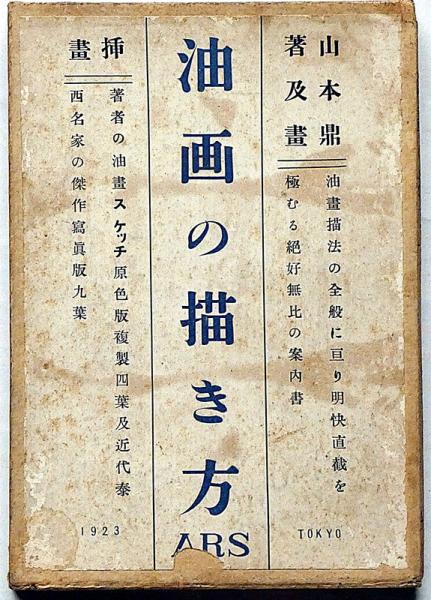 山本鼎
著及畫
油畫描法の全般に亘り明快直截を
極むる絶好無比の案内書
TOKYO
油画の描き方
ARS
挿畫
著者の油畫スケッチ原色版複製四葉及近代泰
西名家の傑作寫眞版九葉
1923